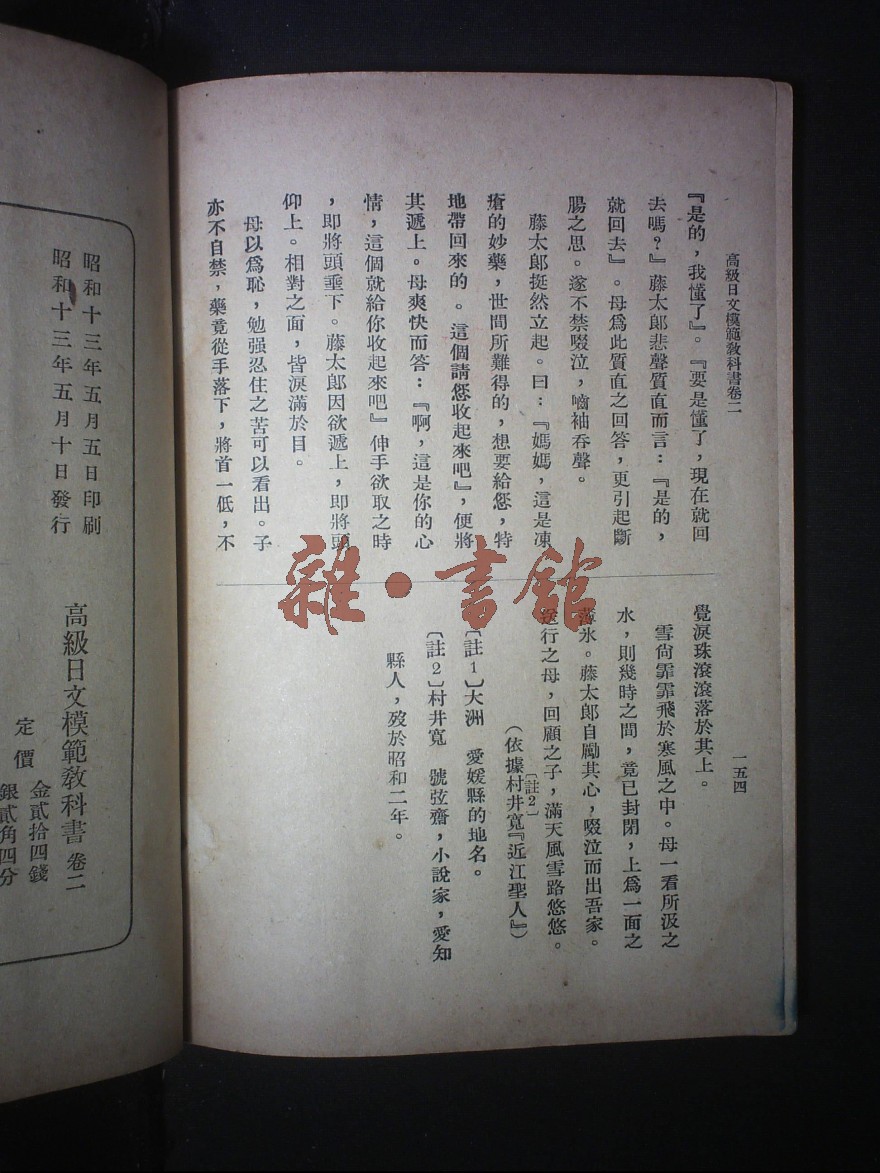 高級日文模範教科書卷二
『是的，我懂了』。『要是懂了，現在就回
去嗎？』藤太郎悲聲質直而言：『是的，
就回去』。母爲此質直之回答，更引起斷
腸之思。遂不禁啜泣，嚙袖吞聲。
藤太郎挺然立起。曰：『媽媽，這是凍
瘡的妙藥，世間所難得的，想要給您，特
地帶回來的。這個請您收起來吧』，便將
其遞上。母爽快而答：『啊，這是你的心
情，這個就給你收起來吧』伸手欲取之時
，即將頭垂下。藤太郎因欲遞上，即將頭
仰上。相對之面，皆淚滿於目。
母以爲恥，勉强忍住之苦可以看出。子
亦不自禁，藥竟從手落下，將首一低，不
一五四
覺淚珠滾滾落於其上。
雪尙霏霏飛於寒風之中。母一看所汲之
水，則幾時之間，竟已封閉，上爲一面之
薄氷。藤太郎自勵其心，啜泣而出吾家。
送行之母，回顧之子，滿天風雪路悠悠。
（依據村井寬『近江聖人』）
〔註2〕
〔註1〕大洲　愛媛縣的地名。
〔註2〕村井寬　號弦齋，小說家，愛知
縣人，歿於昭和二年。
雜·書館
昭和十三年五月五日印刷
昭和十三年五月十日發行
高級日文模範教科書 卷二
定價
金貳拾四錢
銀貳角四分